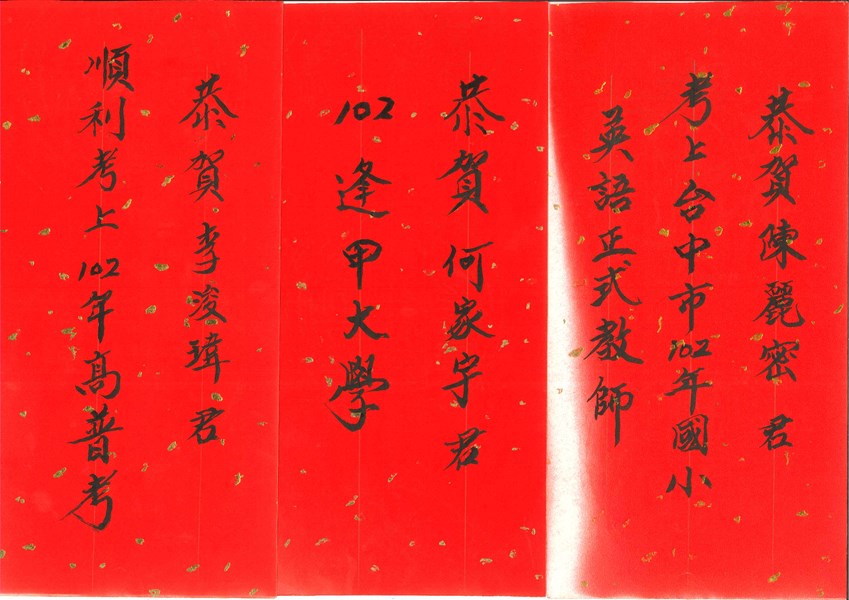 恭賀陳麗密君
考上台中市102年國小
英語正式教師
恭賀何家宇君
102逢甲大學
恭賀李浚瑋君
順利考上102年高普考